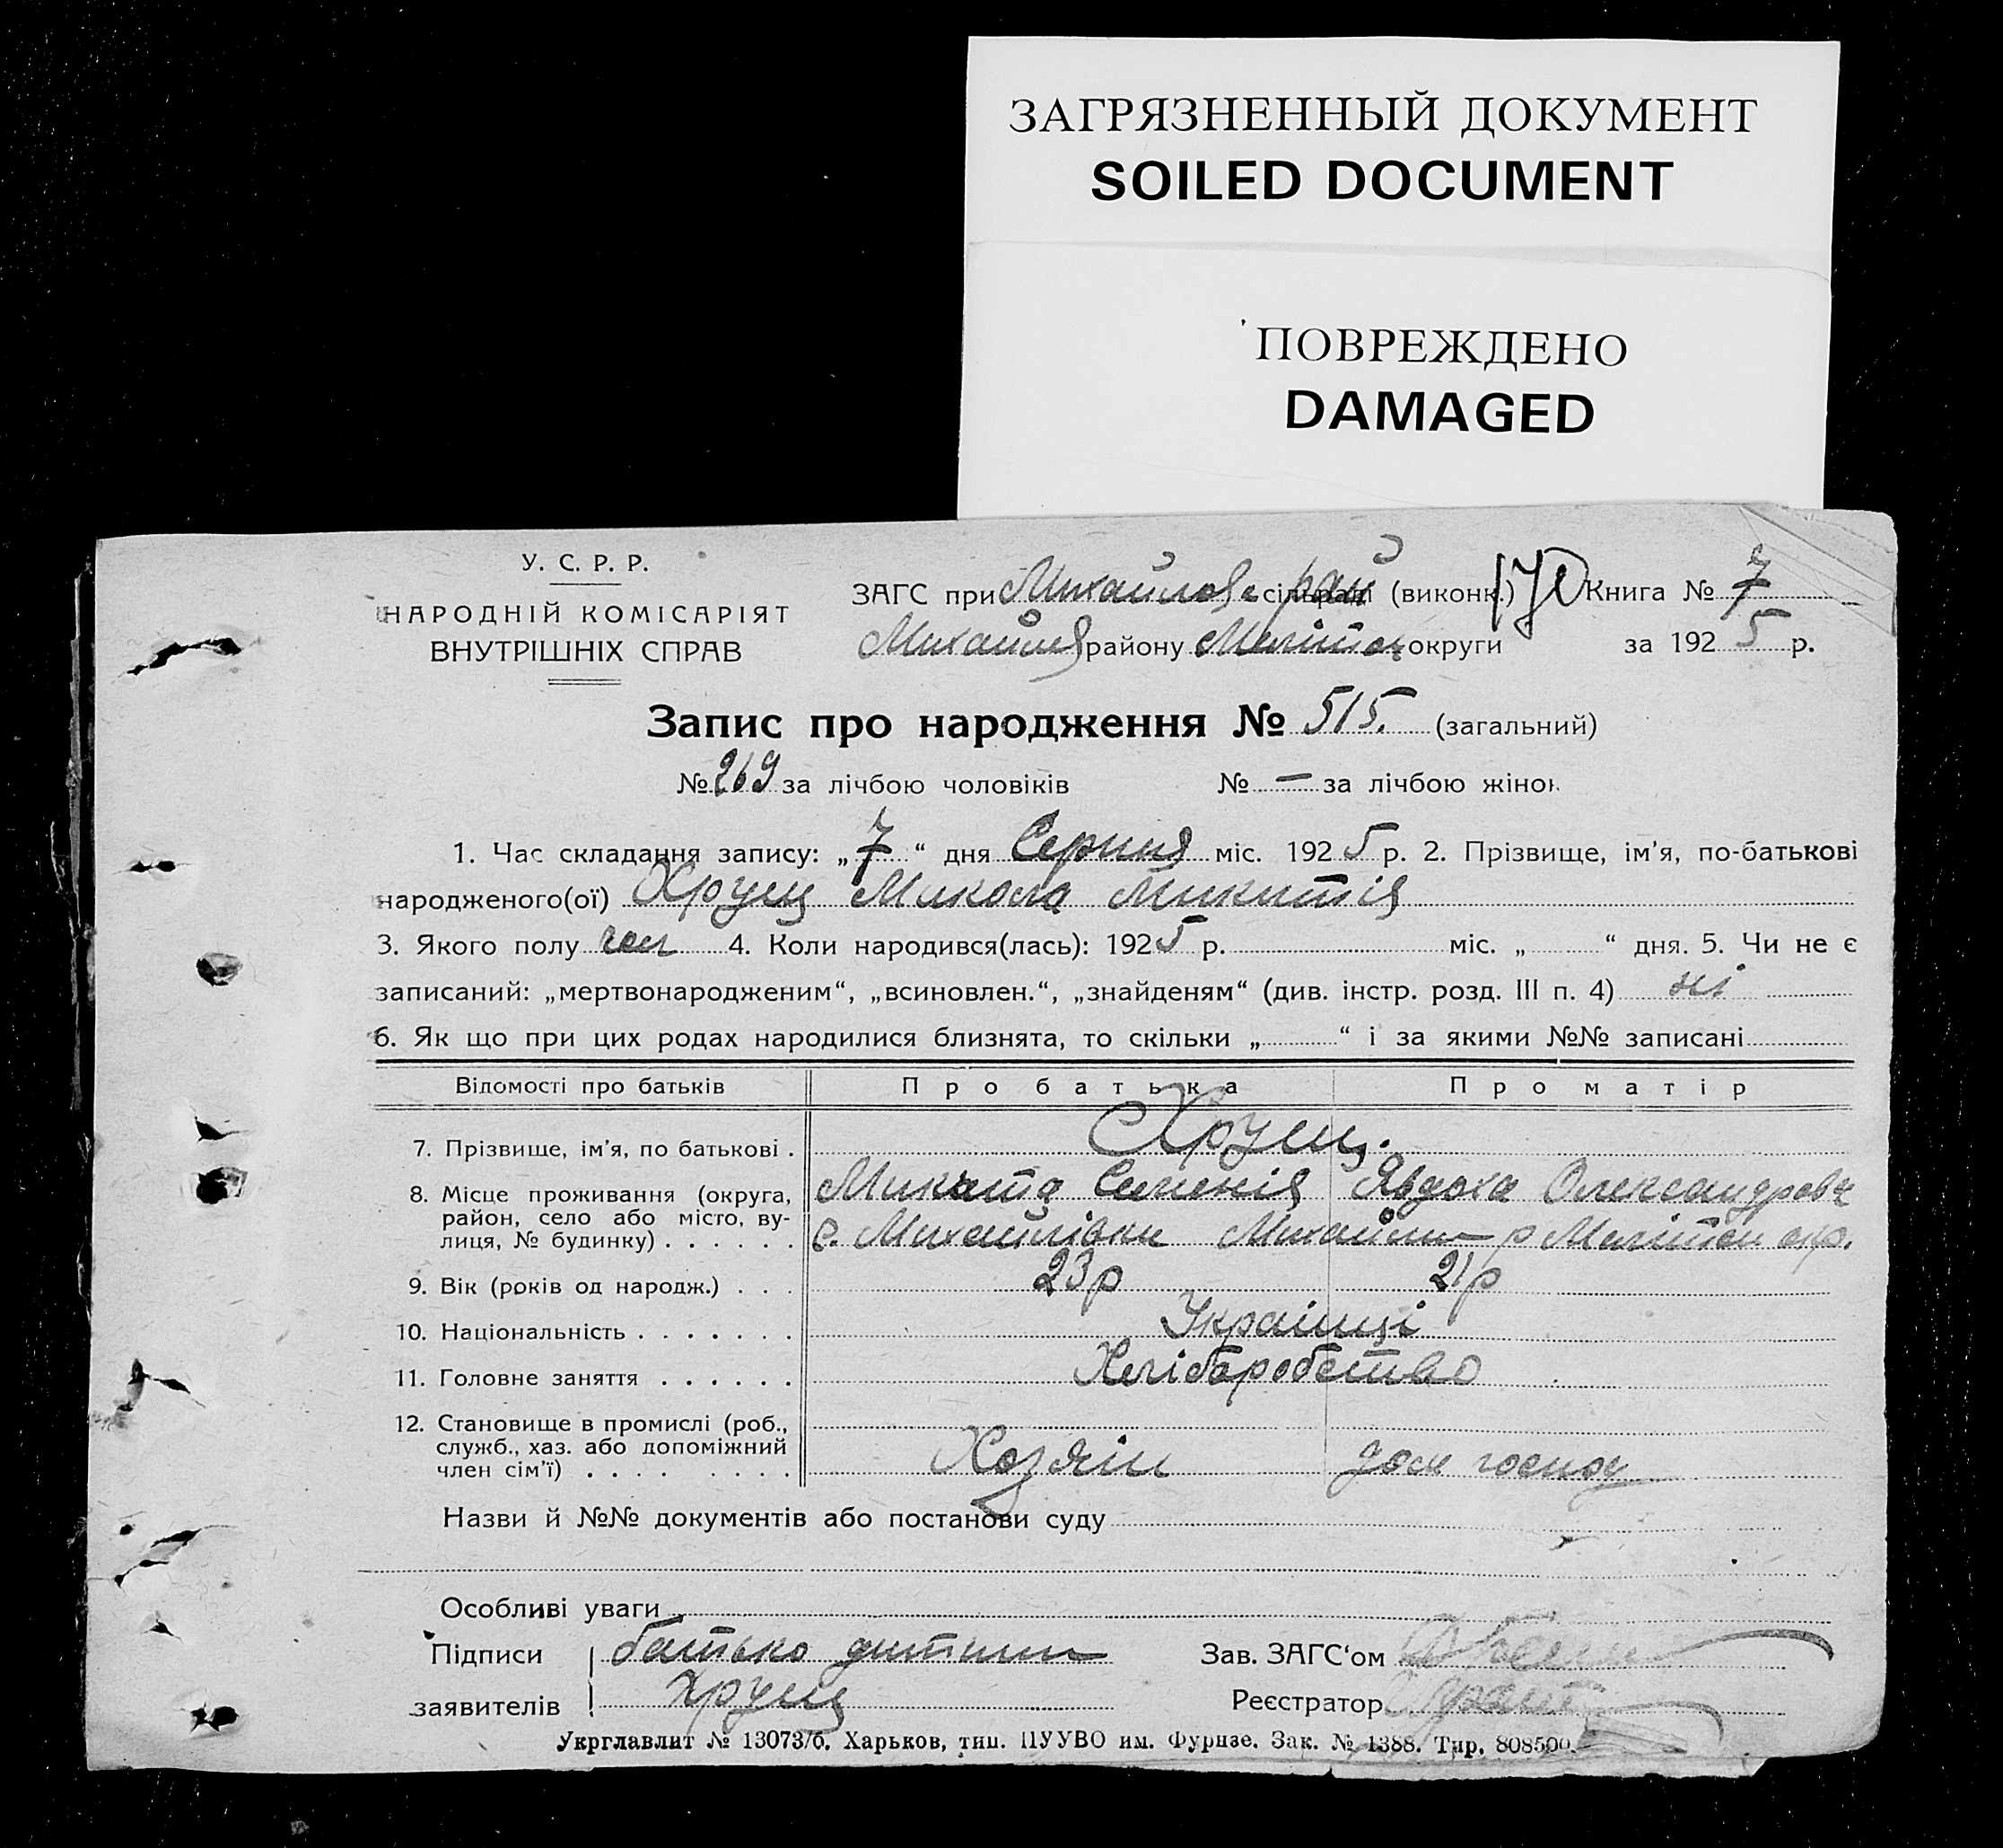 ЗАГРЯЗНЕННЫЙ ДОКУМЕНТ
SOILED DOCUMENT
ПОВРЕЖДЕНО
DAMAGED
У. С. Р. Р.
НАРОДНІЙ КОМІСАРІЯТ
ВНУТРІШНІХ СПРАВ
ЗАГС при Михайлов сільраді рай (виконк.) Книга № 7
Михайлів району Меліт округи за 1925 р.
Запис про народження № 515. (загальний)
№ 269 за лічбою чоловіків № — за лічбою жінок
1. Час складання запису: „7“ дня Серпня міс. 1925 р. 2. Прізвище, ім'я, по-батькові
народженого(ої) Хрущ Микола Микитів
3. Якого полу чол 4. Коли народився(лась): 1925 р. міс. „ “ дня. 5. Чи не є
записаний: „мертвонародженим“, „всиновлен.“, „знайденям“ (див. інстр. розд. III п. 4) ні
6. Як що при цих родах народилися близнята, то скільки „ “ і за якими №№ записані
Відомості про батьків Про батька Про матір
7. Прізвище, ім'я, по батькові . Хрущ.
8. Місце проживання (округа, Микита Семенів Явдоха Олександровн
район, село або місто, ву-
лиця, № будинку) . . . . . . с. Михайлівки Михайлів р Мелітоп окр.
9. Вік (років од народж.) . . . 23 р 21 р
10. Національність . . . . . . . Українці
11. Головне заняття . . . . . . Хліборобство
12. Становище в промислі (роб.,
служб., хаз. або допоміжний
член сім'ї) . . . . . . . . Хозяїн дом господ
Назви й №№ документів або постанови суду
Особливі уваги
Підписи батько дитини Зав. ЗАГС'ом
заявителів Хрущ Реєстратор
Укрглавлит № 13073/б. Харьков, тип. ПУУВО им. Фрунзе. Зак. № 1388. Тир. 808500.